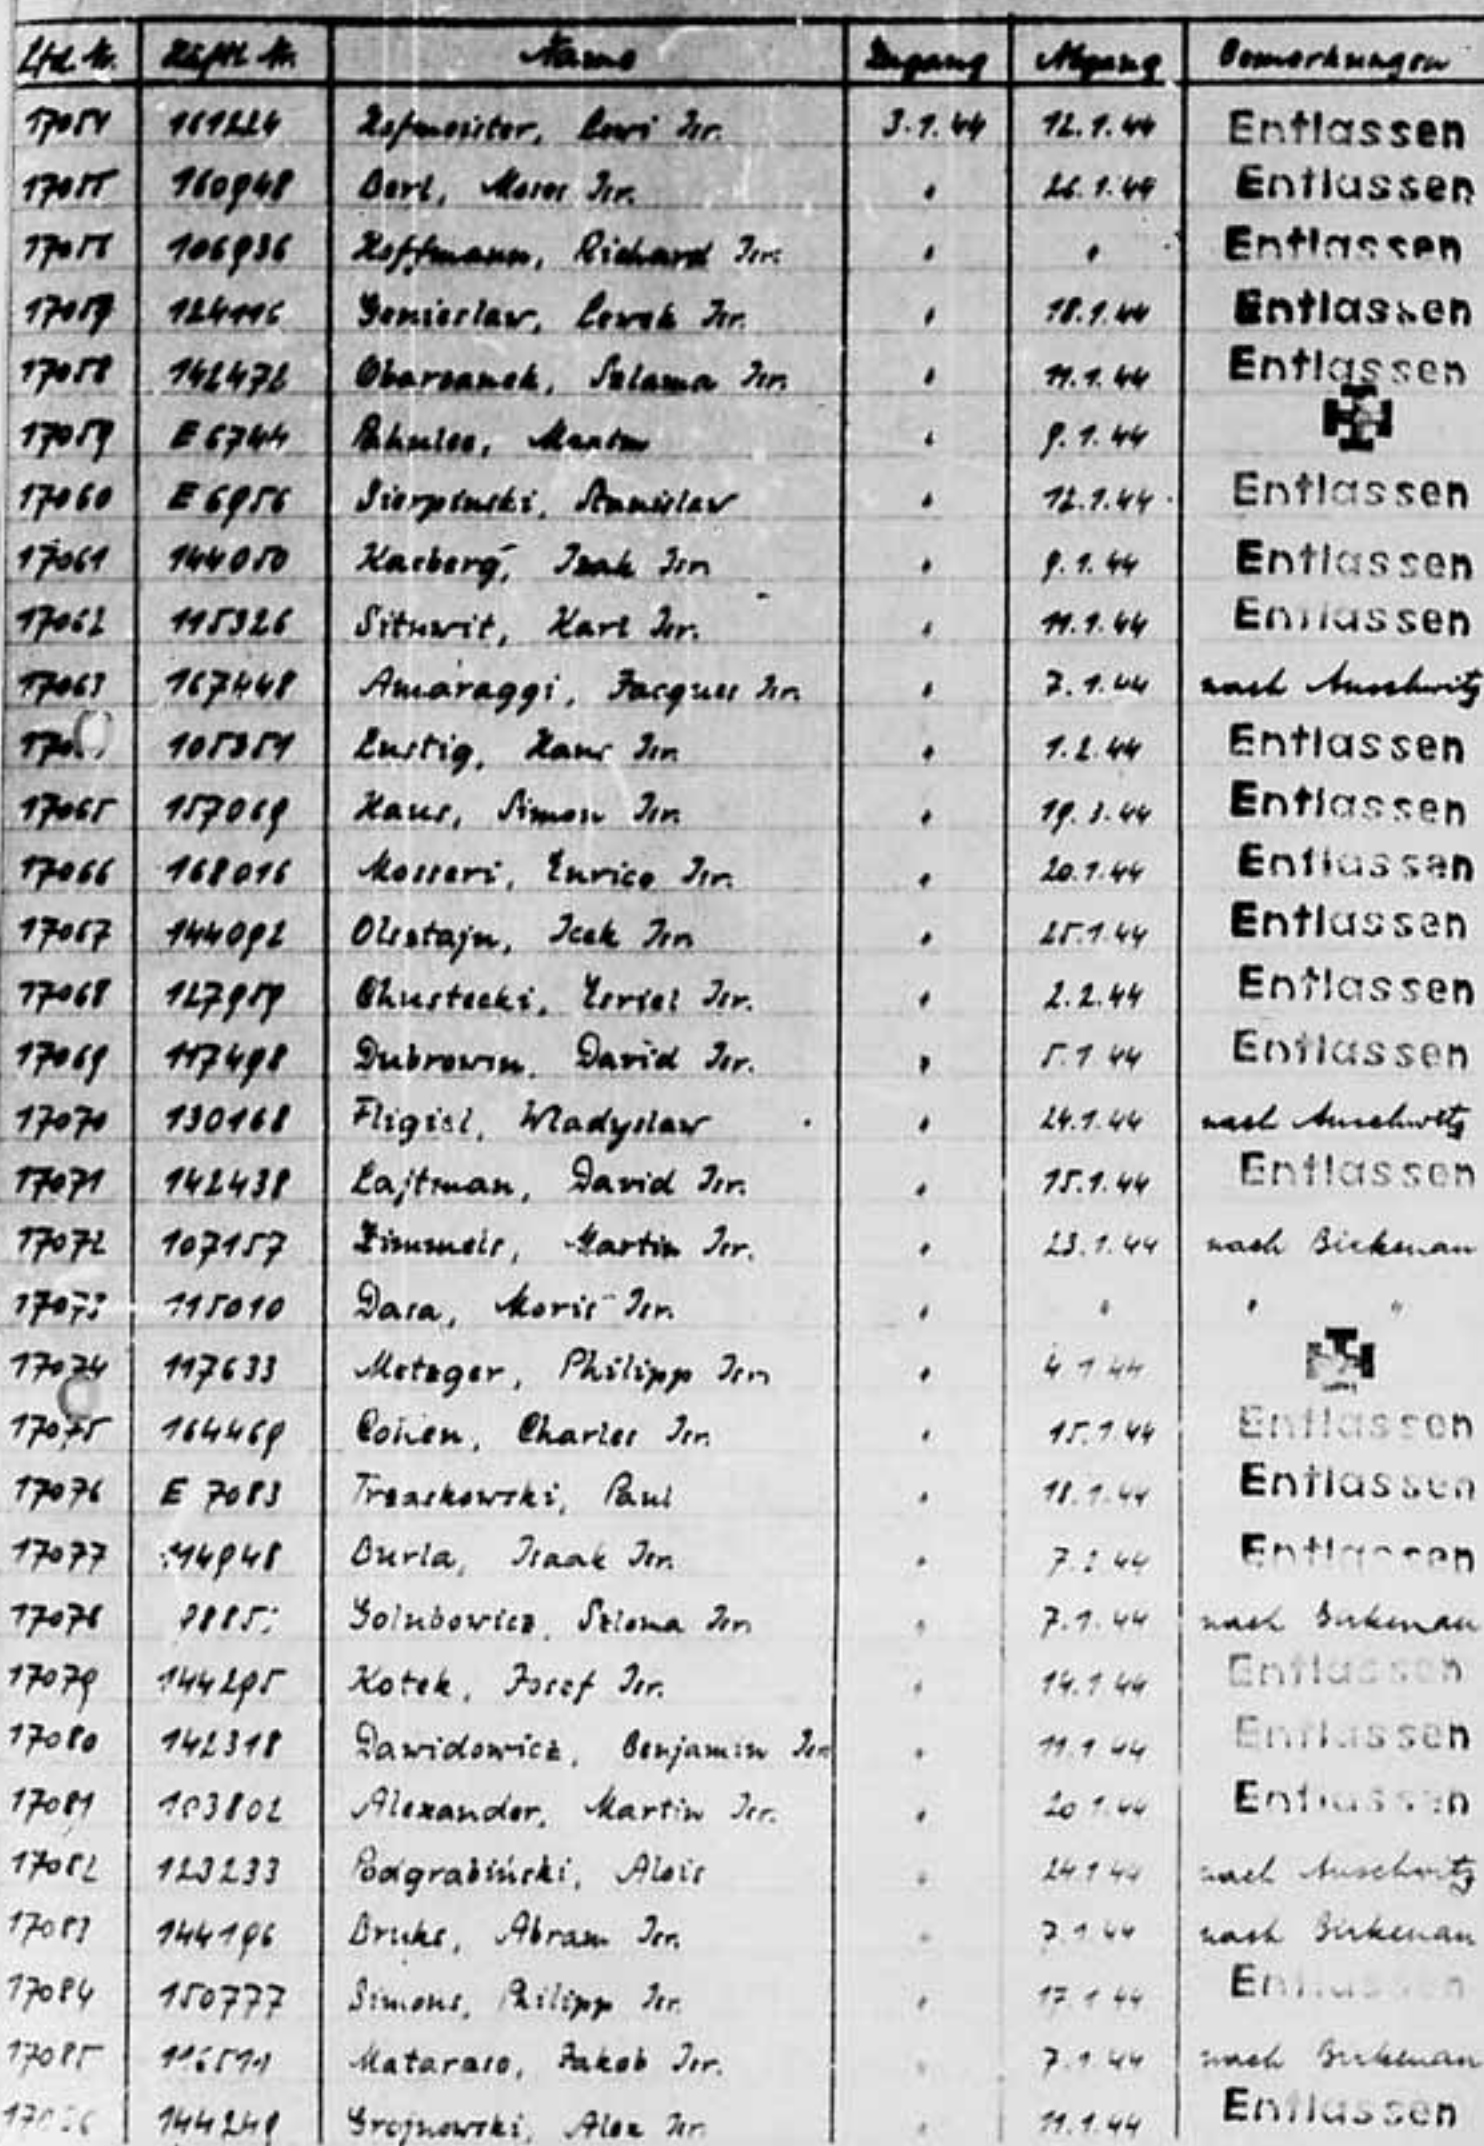 Lfd. Nr. Häftl. Nr. Name Zugang Abgang Bemerkungen
17054 161224 Hofmeister, Lewi Isr. 3.1.44 12.1.44 Entlassen
17055 160948 Berl, Moses Isr. " 26.1.44 Entlassen
17056 106936 Hoffmann, Richard Isr. " " Entlassen
17057 124116 Lewek Isr. " 18.1.44 Entlassen
17058 142472 Obarzanek, Szlama Isr. " 11.1.44 Entlassen
17059 E 6744 Martin " 9.1.44
17060 E 6956 Sierpinski, Stanislaw " 12.1.44 Entlassen
17061 144050 Kacberg, Izak Isr. " 9.1.44 Entlassen
17062 115326 Karl Isr. " 11.1.44 Entlassen
17063 167448 Amaraggi, Jacques Isr. " 7.1.44 nach Auschwitz
105351 Lustig, Hans Isr. " 1.2.44 Entlassen
17065 157069 Haus, Simon Isr. " Entlassen
17066 168016 Mosseri, Enrico Isr. " 20.1.44 Entlassen
17067 144092 Olsztajn, Icek Isr. " 25.1.44 Entlassen
17068 127959 Chustecki, Isr. " 2.2.44 Entlassen
17069 117498 Dubrowin, David Isr. " 5.1.44 Entlassen
17070 130168 Fligiel, Wladyslaw " 24.1.44 nach Auschwitz
17071 142438 Lajtman, David Isr. " 15.1.44 Entlassen
17072 107157 Zimmels, Martin Isr. " 23.1.44 nach Birkenau
17073 115010 Dasa, Moris Isr. " " " "
17074 117633 Metzger, Philipp Isr. " 4.1.44
17075 164469 Cohen, Charles Isr. " 15.1.44 Entlassen
17076 E 7083 Trzaskowski, Paul " 18.1.44 Entlassen
17077 114948 Burla, Isaak Isr. " 7.2.44 Entlassen
17078 Golubowicz, Szloma Isr. " 7.1.44 nach Birkenau
17079 144295 Kotek, Josef Isr. " 14.1.44 Entlassen
17080 142318 Dawidowicz, Benjamin Isr. " 11.1.44 Entlassen
17081 103802 Alexander, Martin Isr. " 20.1.44 Entlassen
17082 123233 Podgrabiński, Alois " 24.1.44 nach Auschwitz
17083 144196 Bruks, Abram Isr. " 7.1.44 nach Birkenau
17084 150777 Simons, Philipp Isr. " 17.1.44 Entlassen
17085 116511 Mataraso, Jakob Isr. " 7.1.44 nach Birkenau
17086 144249 Grojnowski, Alex Isr. " 11.1.44 Entlassen